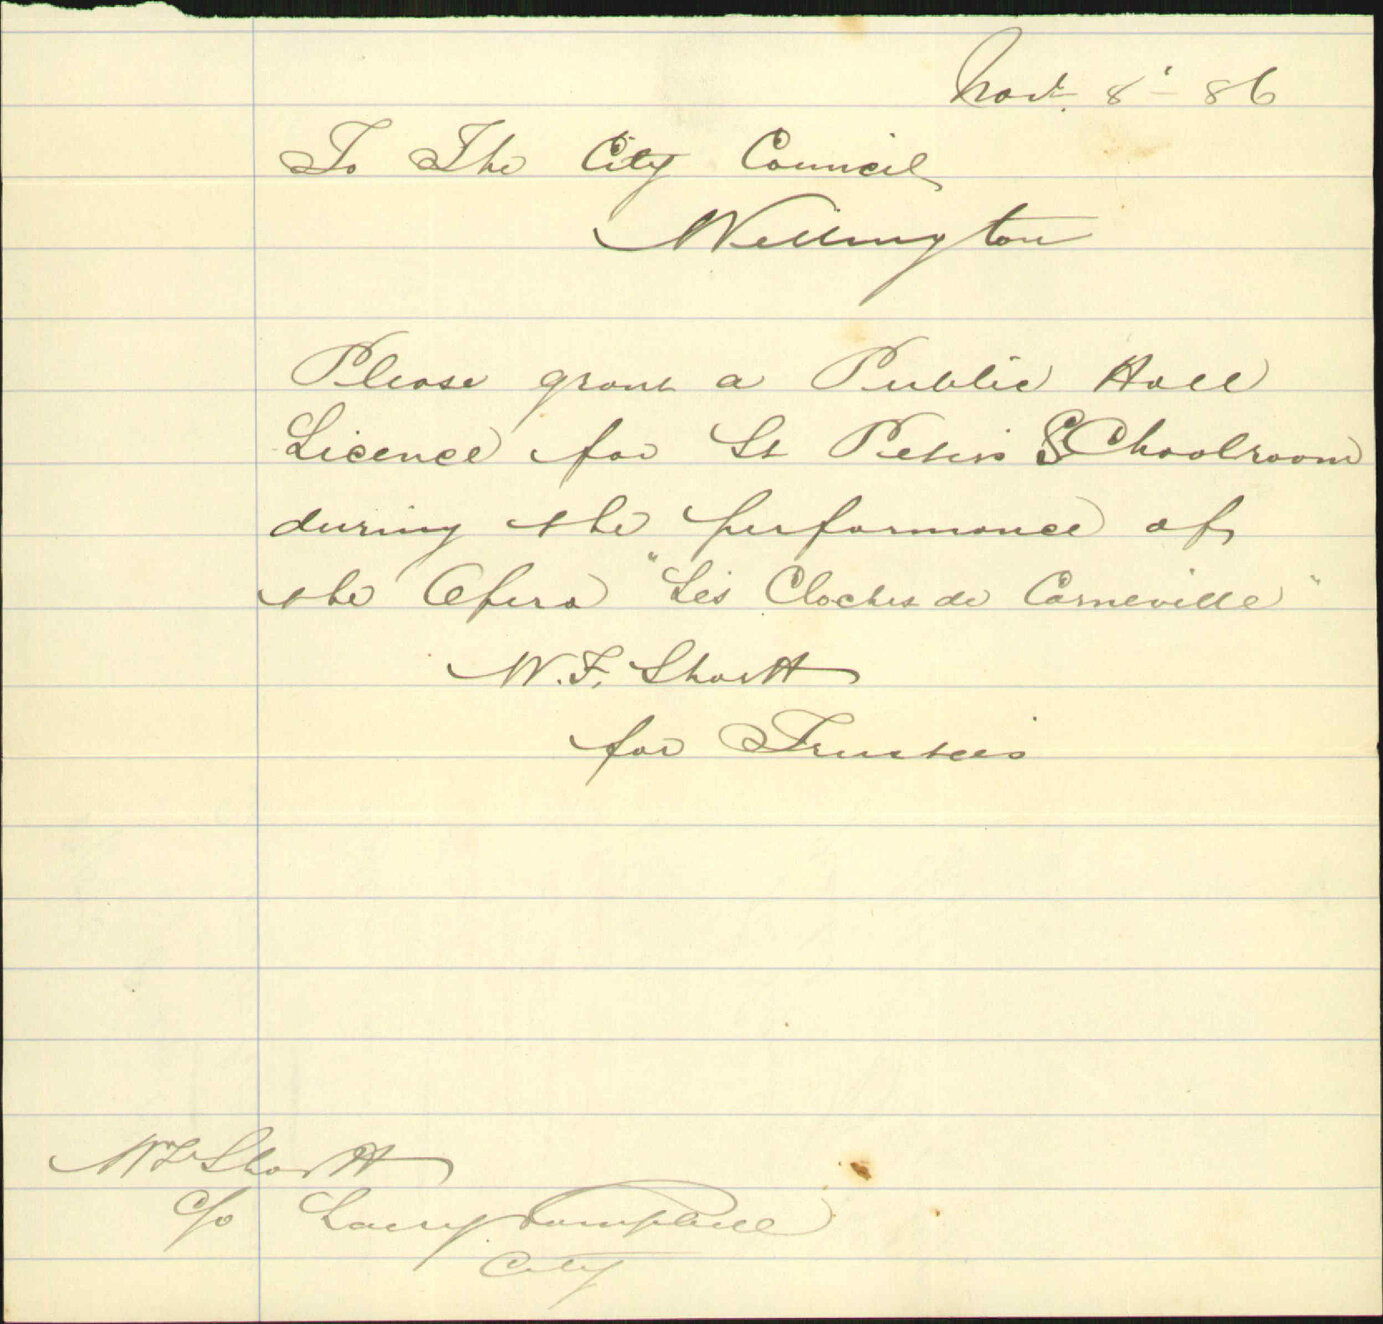 Novr. 8' - 86
To The City Council
Wellington
Please grant a Public Hall
Licence for St Peters Schoolroom
during the performance of
the Opera "Les Cloches de Corneville"
W.F. Shortt
for Trustees
Wm F Shortt
c/o Lacy Campbell
City